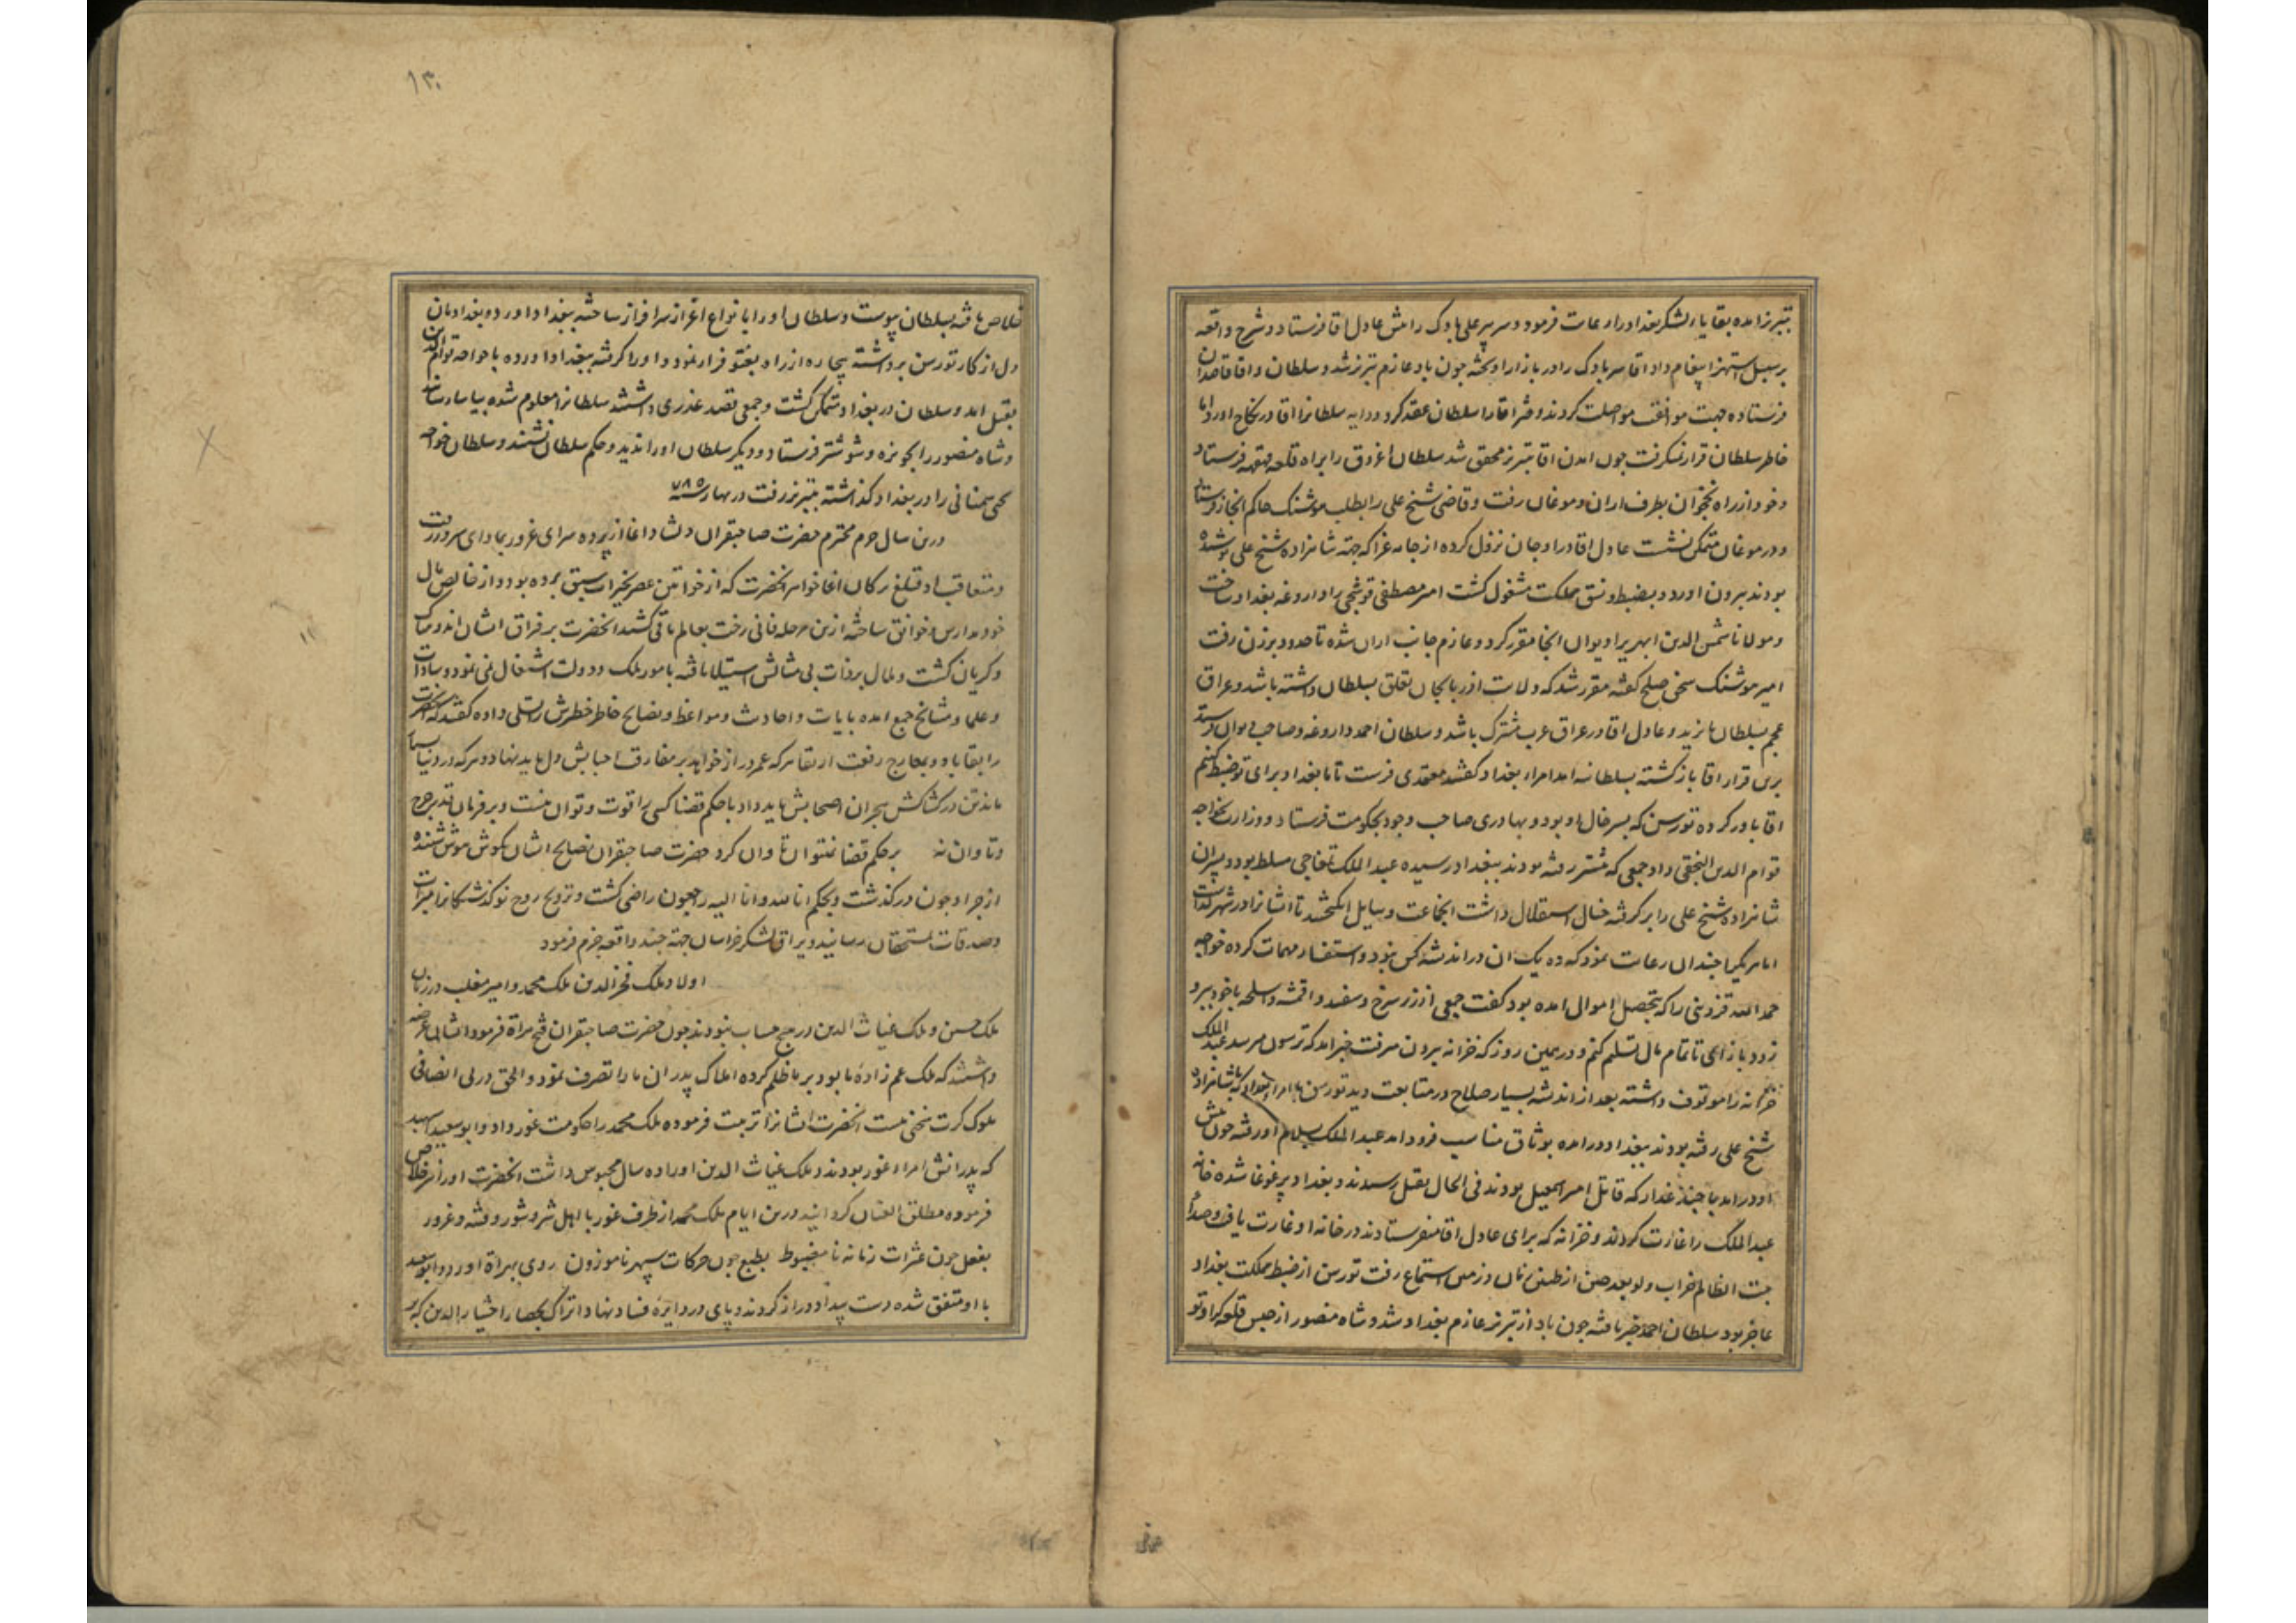 تبریز امده بقایاء لشکر بغداد را رعایت فرمود و سر پیر علی بادک را پیش عادل اقا فرستاد و شرح واقعه
بر سبیل استهزا پیغام داد اقا سر بادک را در بازار اویخته چون باد عازم تبریز شد و سلطان و اقا قاصدان
فرستاده جهت موافقت مواصلت کردند دختر اقا را سلطان عقد کرد و دایه سلطانرا اقا در نکاح اورد اما
خاطر سلطان قرار نمیکرفت چون امدن اقا تبریز محقق شد سلطان اغروق را براه قلعه قهقهه فرستاد
و خود از راه نخجوان بطرف اران و موغان رفت و قاضی شیخ علی را بطلب هوشنک حاکم انجا فرستاد
و در موغان متمکن نشست عادل اقا در اوجان نزول کرده از جامه عزا که جهة شاهزاده شیخ علی پوشیده
بودند بیرون اورد و بضبط و نسق مملکت مشغول کشت امیر مصطفی قوشچی را داروغه بغداد ساخت
و مولانا شمس الدین ابهری را دیوان انجا مقرر کرد و عازم جانب اران شده تا حدود برزن رفت
امیر هوشنک سخن صلح کفته مقرر شد که ولایت اذربایجان تعلق بسلطان داشته باشد و عراق
عجم بسلطان بایزید و عادل اقا در عراق عرب مشترک باشد و سلطان احمد داروغه و صاحب دیوان فرستد
برین قرار اقا باز کشته بسلطانیه امد امراء بغداد کفتند معتمدی فرست تا ما بغداد برای تو ضبط کنیم
اقا باور کرده تورسن که پسر خال او بود و بهادری صاحب وجود بحکومت فرستاد و وزارت بخواجه
قوام الدین النجفی داد و جمعی که بششتر رفته بودند ببغداد رسیده عبد الملک تمغاجی مسلط بود و پیران
شاهزاده شیخ علی را بر کرفته خیال استقلال داشت انجماعت وسایل انکیختند تا ایشانرا در شهر کذاشت
اما هر یکرا چندان رعایت نمود که ده یک ان در اندیشه کس نبود و استفسار مهمات کرده خواجه
حمد الله قزوینی را که بتحصیل اموال امده بود کفت جمعی از زر سرخ و سفید و اقمشه و اسلحه با خود ببر و
زود باز ای تا تمام مال تسلیم کنم و در همین روز که خزانه بیرون میرفت خبر امد که تورسن میرسد عبد الملک
خزانه را موقوف داشته بعد از اندیشه بسیار صلاح در متابعت دید تورسن با امراء بغداد که با شاهزاده
شیخ علی رفته بودند ببغداد در امده بوثاق مناسب فرود امد عبد الملک بسلام او رفته چون پیش
او در امد با چند غدار که قاتل امیر اسمعیل بودند فی الحال بقتل رسیدند و بغداد پر غوغا شده خانه
عبد الملک را غارت کردند و خزانه که برای عادل اقا میفرستادند در خانه او غارت یافت و صدای
بیت الظالم خراب ولو بعد حین از طنین زمان و زمین استماع رفت تورسن از ضبط مملکت بغداد
عاجز بود سلطان احمد خبر یافته چون باد از تبریز عازم بغداد شد و شاه منصور از حبس قلعه کراوتو
۱۳۰
خلاص یافته بسلطان پیوست و سلطان او را بانواع اعزاز سرافراز ساخته ببغداد اورد و بغدادیان
دل از کار تورسن برداشته بیچاره از راه یعقو فرار نمود و او را کرفته ببغداد اورده با خواجه قوام الدین
بقتل امد و سلطان در بغداد متمکن کشت و جمعی قصد غدری داشتند سلطانرا معلوم شده بیاسا رسانید
و شاه منصور را بحویزه و شوشتر فرستاد و دیکر سلطان او را ندید و حکم سلطان نشنید و سلطان خواجه
یحیی سمنانی را در بغداد کذاشته بتبریز رفت در بهار سنه ۷۸۵
درین سال حرم محترم حضرت صاحبقران دلشاد اغا از پرده سرای غرور بماوای سرور رفت
و متعاقب او قتلغ ترکان اغا خواهر انحضرت که از خواتین عصر بخیرات سبق برده بود و از خالص مال
خود مدارس و خوانق ساخته ازین مرحله فانی رخت بعالم باقی کشید انحضرت بر فراق ایشان اندوهناک
و کریان کشت و ملال بر ذات بی مثالش استیلا یافته بامور ملک و دولت اشتغال نمی نمود و سادات
و علما و مشایخ جمع امده بایات و احادیث و مواعظ و نصایح خاطر خطیرش را تسلی داده کفتند که انحضرت
را بقا باد و بمعارج رفعت ارتقا هر که عمر دراز خواهد بر مفارقت احبابش دل باید نهاد و هر که در دنیا بسیار
ماند تن در کشاکش هجران اصحابش باید داد با حکم قضا کسی را قوت و توان نیست و بر فرمان قدر جرح
و تاوان نه بر حکم قضا نتوان تاوان کرد حضرت صاحبقران نصایح ایشان بکوش هوش شنیده
از چرا و چون در کذشت و بحکم انا لله و انا الیه راجعون راضی کشت و ترویح روح نو کذشتکانرا مبرات
و صدقات بمستحقان رسانید و یراق لشکر خراسان جهة چند واقعه جزم فرمود
اولاد ملک فخر الدین ملک محمد و امیر مغلب در زمان
ملک حسین و ملک غیاث الدین در هیچ حساب نبودند چون حضرت صاحبقران فتح هراة فرمود ایشان عرضه
داشتند که ملک عم زاده ما بود بر ما ظلم کرده املاک پدران ما را تصرف نمود و الحق در بی انصافی
ملوک کرت سخنی نیست انحضرت ایشانرا تربیت فرموده ملک محمد را حکومت غور داد و ابو سعید اسپهبد
که پدرانش امراء غور بودند و ملک غیاث الدین او را ده سال محبوس داشت انحضرت او را نیز خلاص
فرموده مطلق العنان کردانید درین ایام ملک محمد از طرف غور با اهل شر و شور و فتنه و غرور
بفعل چون عثرات زمانه نا مضبوط بطبع چون حرکات سپهر ناموزون روی بهراة اورد و ابو سعید
با او متفق شده دست بیداد دراز کردند و پای در دایره فساد نهاد و اتراک بحصار اختیار الدین که بر